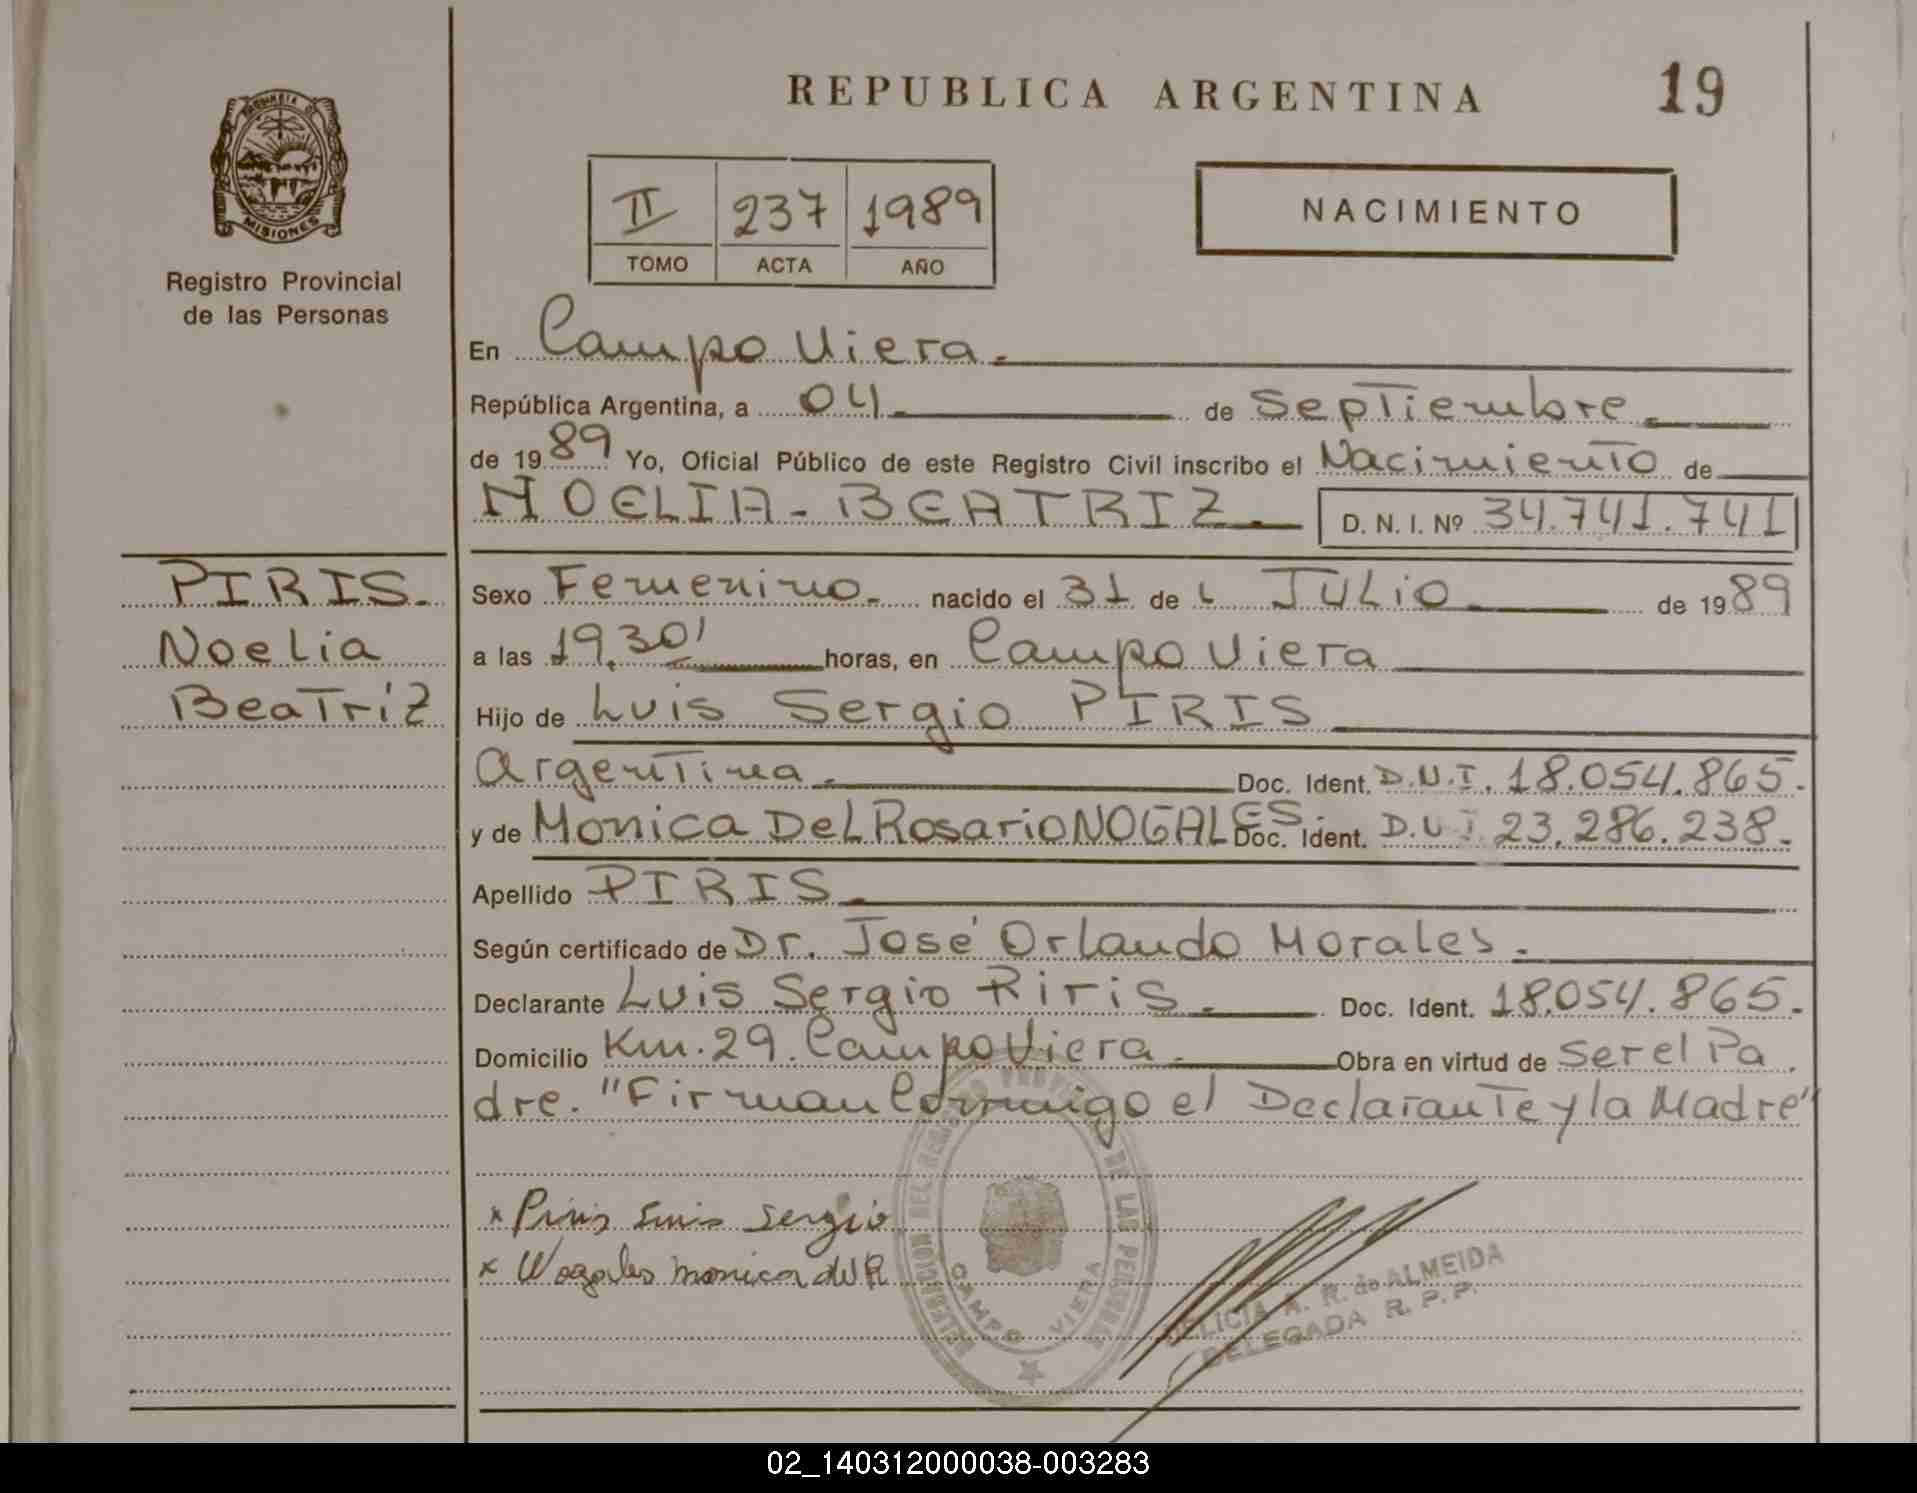 REPUBLICA ARGENTINA
19
PROVINCIA DE
MISIONES
Registro Provincial
de las Personas
II 237 1989
TOMO ACTA AÑO
NACIMIENTO
En Campo Viera.
República Argentina, a 04. de Septiembre.
de 1989 Yo, Oficial Público de este Registro Civil inscribo el Nacimiento de
NOELIA-BEATRIZ. D. N. I. Nº 34.741.741
PIRIS.
Noelia
Beatriz
Sexo Femenino. nacido el 31 de JULio de 1989
a las 19,30' horas, en Campo Viera
Hijo de Luis Sergio PIRIS
Argentina. Doc. Ident. D.N.I. 18.054.865.
y de Monica Del Rosario NOGALES. Doc. Ident. D.N.I. 23.286.238.
Apellido PIRIS.
Según certificado de Dr. José Orlando Morales.
Declarante Luis Sergio Piris. Doc. Ident. 18.054.865.
Domicilio Km. 29. Campo Viera. Obra en virtud de ser el Pa
dre. "Firman Conmigo el Declarante y la Madre"
x Piris Luis Sergio
x Nogales monica del R
CAMPO VIERA
DE LAS PERSONAS
A. R. de ALMEIDA
DELEGADA R. P. P.
02_140312000038-003283